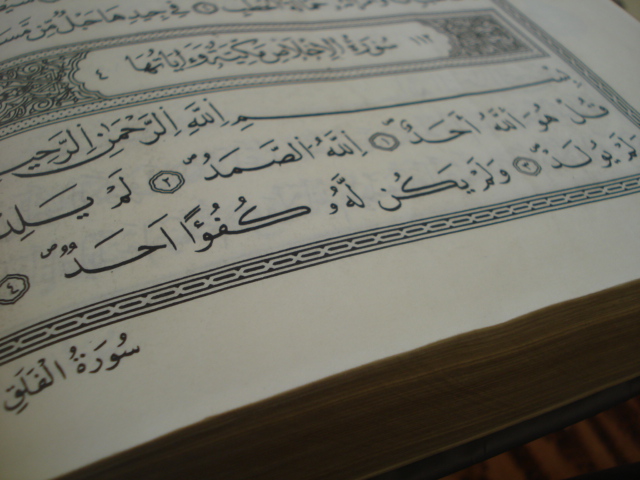 فِي جِيدِهَا حَبْلٌ مِّن مَّسَدٍ
١١٢ سُورَةُ الْإِخْلَاصِ مَكِّيَّةٌ وَءَايَاتُهَا ٤
بِسْمِ اللَّهِ الرَّحْمَٰنِ الرَّحِيمِ
قُلْ هُوَ اللَّهُ أَحَدٌ ١ اللَّهُ الصَّمَدُ ٢ لَمْ يَلِدْ
وَلَمْ يُولَدْ ٣ وَلَمْ يَكُن لَّهُ كُفُوًا أَحَدٌ ٤
سُورَةُ الْفَلَقِ